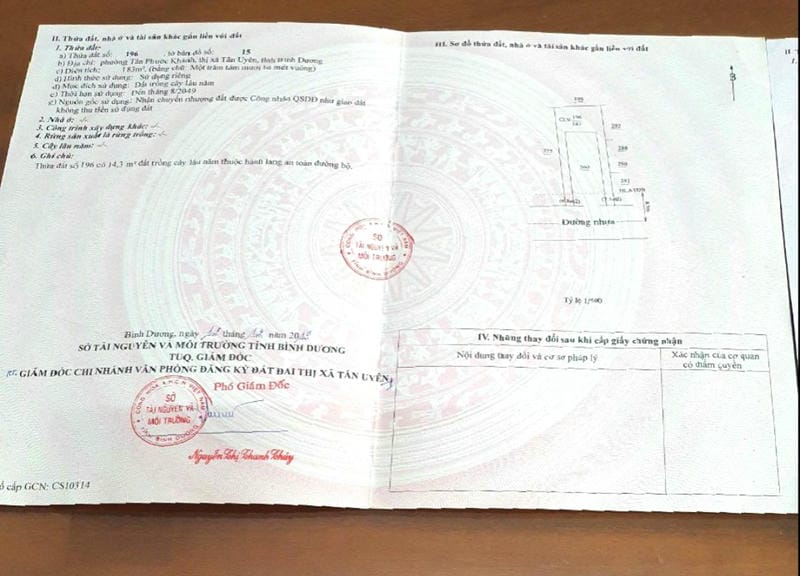 II. Thửa đất, nhà ở và tài sản khác gắn liền với đất
1. Thửa đất:
a) Thửa đất số: 196 tờ bản đồ số: 15
b) Địa chỉ: phường Tân Phước Khánh, thị xã Tân Uyên, tỉnh Bình Dương
c) Diện tích: 183m², (bằng chữ: Một trăm tám mươi ba mét vuông)
d) Hình thức sử dụng: Sử dụng riêng
đ) Mục đích sử dụng: Đất trồng cây lâu năm
e) Thời hạn sử dụng: Đến tháng 8/2049
g) Nguồn gốc sử dụng: Nhận chuyển nhượng đất được Công nhận QSDĐ như giao đất
không thu tiền sử dụng đất
2. Nhà ở: -/-
3. Công trình xây dựng khác: -/-
4. Rừng sản xuất là rừng trồng: -/-
5. Cây lâu năm: -/-
6. Ghi chú:
Thửa đất số 196 có 14,3 m² đất trồng cây lâu năm thuộc hành lang an toàn đường bộ.
Bình Dương, ngày tháng năm
SỞ TÀI NGUYÊN VÀ MÔI TRƯỜNG TỈNH BÌNH DƯƠNG
TUQ. GIÁM ĐỐC
KT. GIÁM ĐỐC CHI NHÁNH VĂN PHÒNG ĐĂNG KÝ ĐẤT ĐAI THỊ XÃ TÂN UYÊN
Phó Giám Đốc
SỞ
TÀI NGUYÊN VÀ
MÔI TRƯỜNG
Nguyễn Thị Thanh Thúy
ố cấp GCN: CS10314
SỞ
TÀI NGUYÊN VÀ
MÔI TRƯỜNG
III. Sơ đồ thửa đất, nhà ở và tài sản khác gắn liền với đất
CLN 196
183
Đường nhựa
Tỷ lệ 1/500
IV. Những thay đổi sau khi cấp giấy chứng nhận
Nội dung thay đổi và cơ sở pháp lý
Xác nhận của cơ quan
có thẩm quyền